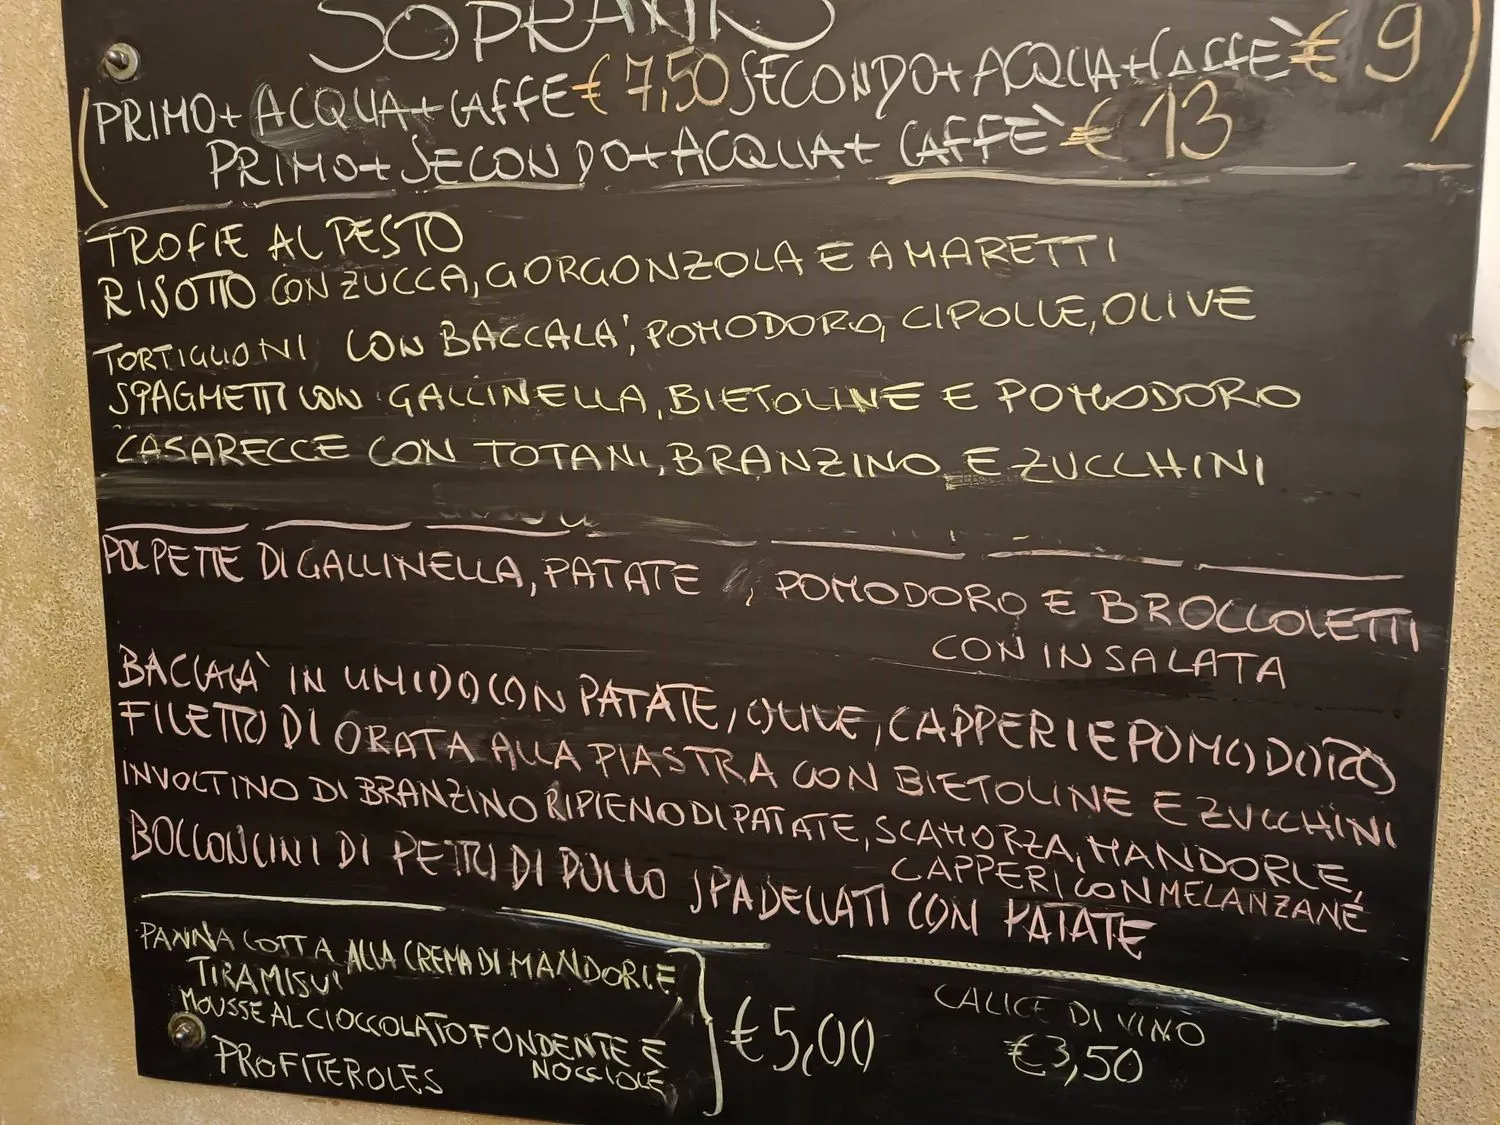 SOPRANIS
PRIMO+ ACQUA+CAFFE € 7,50 SECONDO+ ACQUA+CAFFÈ € 9
PRIMO+SECONDO+ACQUA+ CAFFÈ € 13
TROFIE AL PESTO
RISOTTO CON ZUCCA, GORGONZOLA E AMARETTI
TORTIGLIONI CON BACCALA', POMODORO, CIPOLLE, OLIVE
SPAGHETTI CON GALLINELLA, BIETOLINE E POMODORO
CASARECCE CON TOTANI, BRANZINO E ZUCCHINI
POLPETTE DI GALLINELLA, PATATE , POMODORO E BROCCOLETTI
CON INSALATA
BACCALA' IN UMIDO CON PATATE, OLIVE, CAPPERI E POMODORO
FILETTO DI ORATA ALLA PIASTRA CON BIETOLINE E ZUCCHINI
INVOLTINO DI BRANZINO RIPIENO DI PATATE, SCAMORZA, MANDORLE,
CAPPERI CON MELANZANE
BOCCONCINI DI PETTO DI POLLO SPADELLATI CON PATATE
PANNA COTTA ALLA CREMA DI MANDORLE
TIRAMISU'
MOUSSE AL CIOCCOLATO FONDENTE E
NOCCIOLE
PROFITEROLES
€ 5,00
CALICE DI VINO
€ 3,50